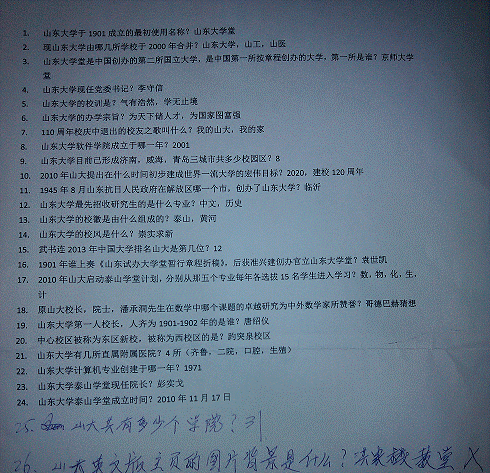 1. 山东大学于 1901 成立的最初使用名称？山东大学堂
2. 现山东大学由哪几所学校于 2000 年合并？山东大学，山工，山医
3. 山东大学堂是中国创办的第二所国立大学，是中国第一所按章程创办的大学，第一所是谁？京师大学
堂
4. 山东大学现任党委书记？李守信
5. 山东大学的校训是？气有浩然，学无止境
6. 山东大学的办学宗旨？为天下储人才，为国家图富强
7. 110 周年校庆中退出的校友之歌叫什么？我的山大，我的家
8. 山东大学软件学院成立于哪一年？2001
9. 山东大学目前已形成济南，威海，青岛三城市共多少校园区？8
10. 2010 年山大提出在什么时间初步建成世界一流大学的宏伟目标？2020，建校 120 周年
11. 1945 年 8 月山东抗日人民政府在解放区哪一个市，创办了山东大学？临沂
12. 山东大学最先招收研究生的是什么专业？中文，历史
13. 山东大学的校徽是由什么组成的？泰山，黄河
14. 山东大学的校风是什么？崇实求新
15. 武书连 2013 年中国大学排名山大是第几位？12
16. 1901 年谁上奏《山东试办大学堂暂行章程折稿》，后获准兴建创办官立山东大学堂？袁世凯
17. 2010 年山大启动泰山学堂计划，分别从那五个专业每年各选拔 15 名学生进入学习？数，物，化，生，
计
18. 原山大校长，院士，潘承洞先生在数学中哪个课题的卓越研究为中外数学家所赞誉？哥德巴赫猜想
19. 山东大学第一人校长，人齐为 1901-1902 年的是谁？唐绍仪
20. 中心校区被称为东区新校，被称为西校区的是？趵突泉校区
21. 山东大学有几所直属附属医院？4 所（齐鲁，二院，口腔，生殖）
22. 山东大学计算机专业创建于哪一年？1971
23. 山东大学泰山学堂现任院长？彭实戈
24. 山东大学泰山学堂成立时间？2010 年 11 月 17 日
25. 山大共有多少个学院？31
26. 山大英文版主页的图片背景是什么？